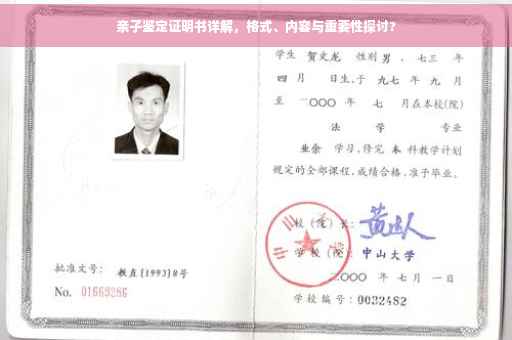 亲子鉴定证明书详解，格式、内容与重要性探讨？
学生 贺文龙 性别 男 、七三 年
四 月 日生，于 九七 年 九 月
至 二〇〇〇 年 七 月在本校(院)
法 学 专业
业余 学习，修完 本 科教学计划
规定的全部课程，成绩合格，准予毕业。
校（院）长：
学校（院）：中山大学
二〇〇〇 年 七 月 一 日
批准文号： 教直[1993]8号
No. 01669286
学校编号：0032482